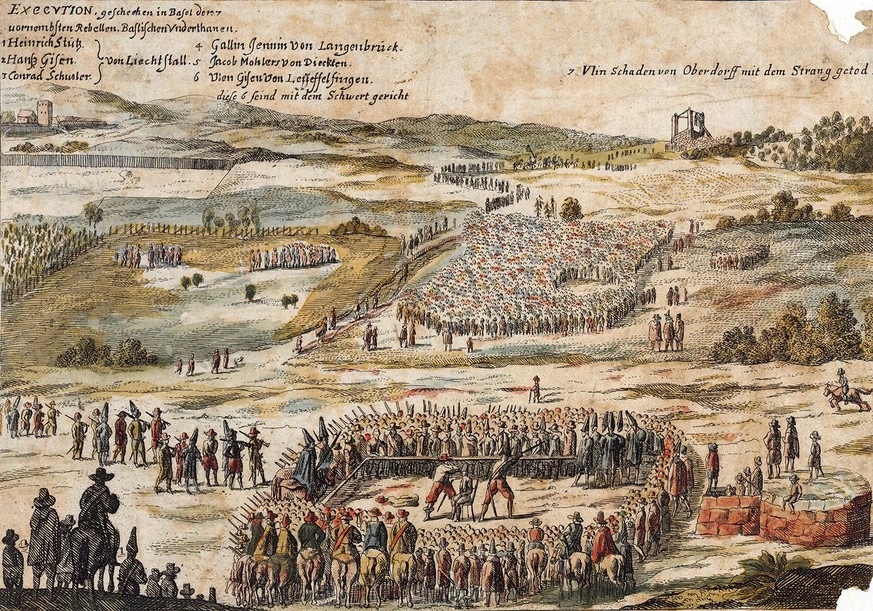 EXECVTION, geschechen in Basel der 7
vornembsten Rebellen. Baslischen Vnderthanen.
1 Heinrich Stütz.
2 Hanß Gisen.
3 Conrad Schuoler.
von Liechtstall.
4 Gallin Jennin von Langenbrück.
5 Jacob Mohlers von Dieckten.
6 Vlen Gisen von Leiffelfingen.
diese 6 seind mit dem Schwert gericht
7. Vlin Schaden von Oberdorff mit dem Strang getöd